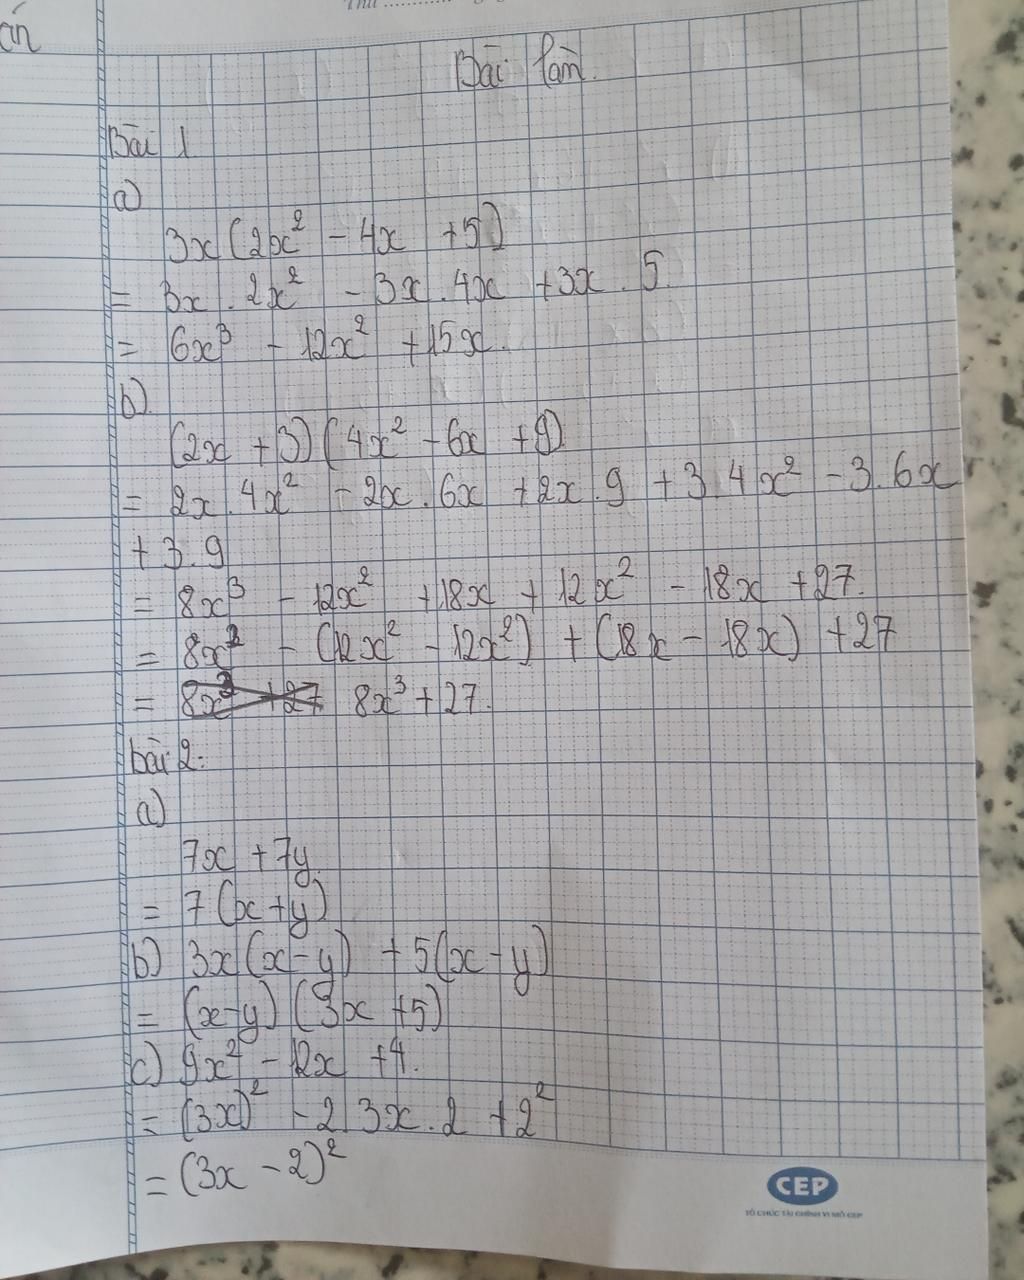 án
Thứ
Bài làm.
Bài 1
a)
3x(2x² - 4x + 5)
= 3x . 2x² - 3x . 4x + 3x . 5.
= 6x³ - 12x² + 15x.
b)
(2x + 3)(4x² - 6x + 9)
= 2x . 4x² - 2x . 6x + 2x . 9 + 3 . 4x² - 3 . 6x
+ 3 . 9
= 8x³ - 12x² + 18x + 12x² - 18x + 27.
= 8x³ - (12x² - 12x²) + (18x - 18x) + 27
= 8x³ + 27.
bài 2:
a)
7x + 7y.
= 7(x + y)
b) 3x(x - y) + 5(x - y)
= (x - y)(3x + 5)
c) 9x² - 12x + 4.
= (3x)² - 2 . 3x . 2 + 2²
= (3x - 2)²
CEP
TỔ CHỨC TÀI CHÍNH VI MÔ CEP